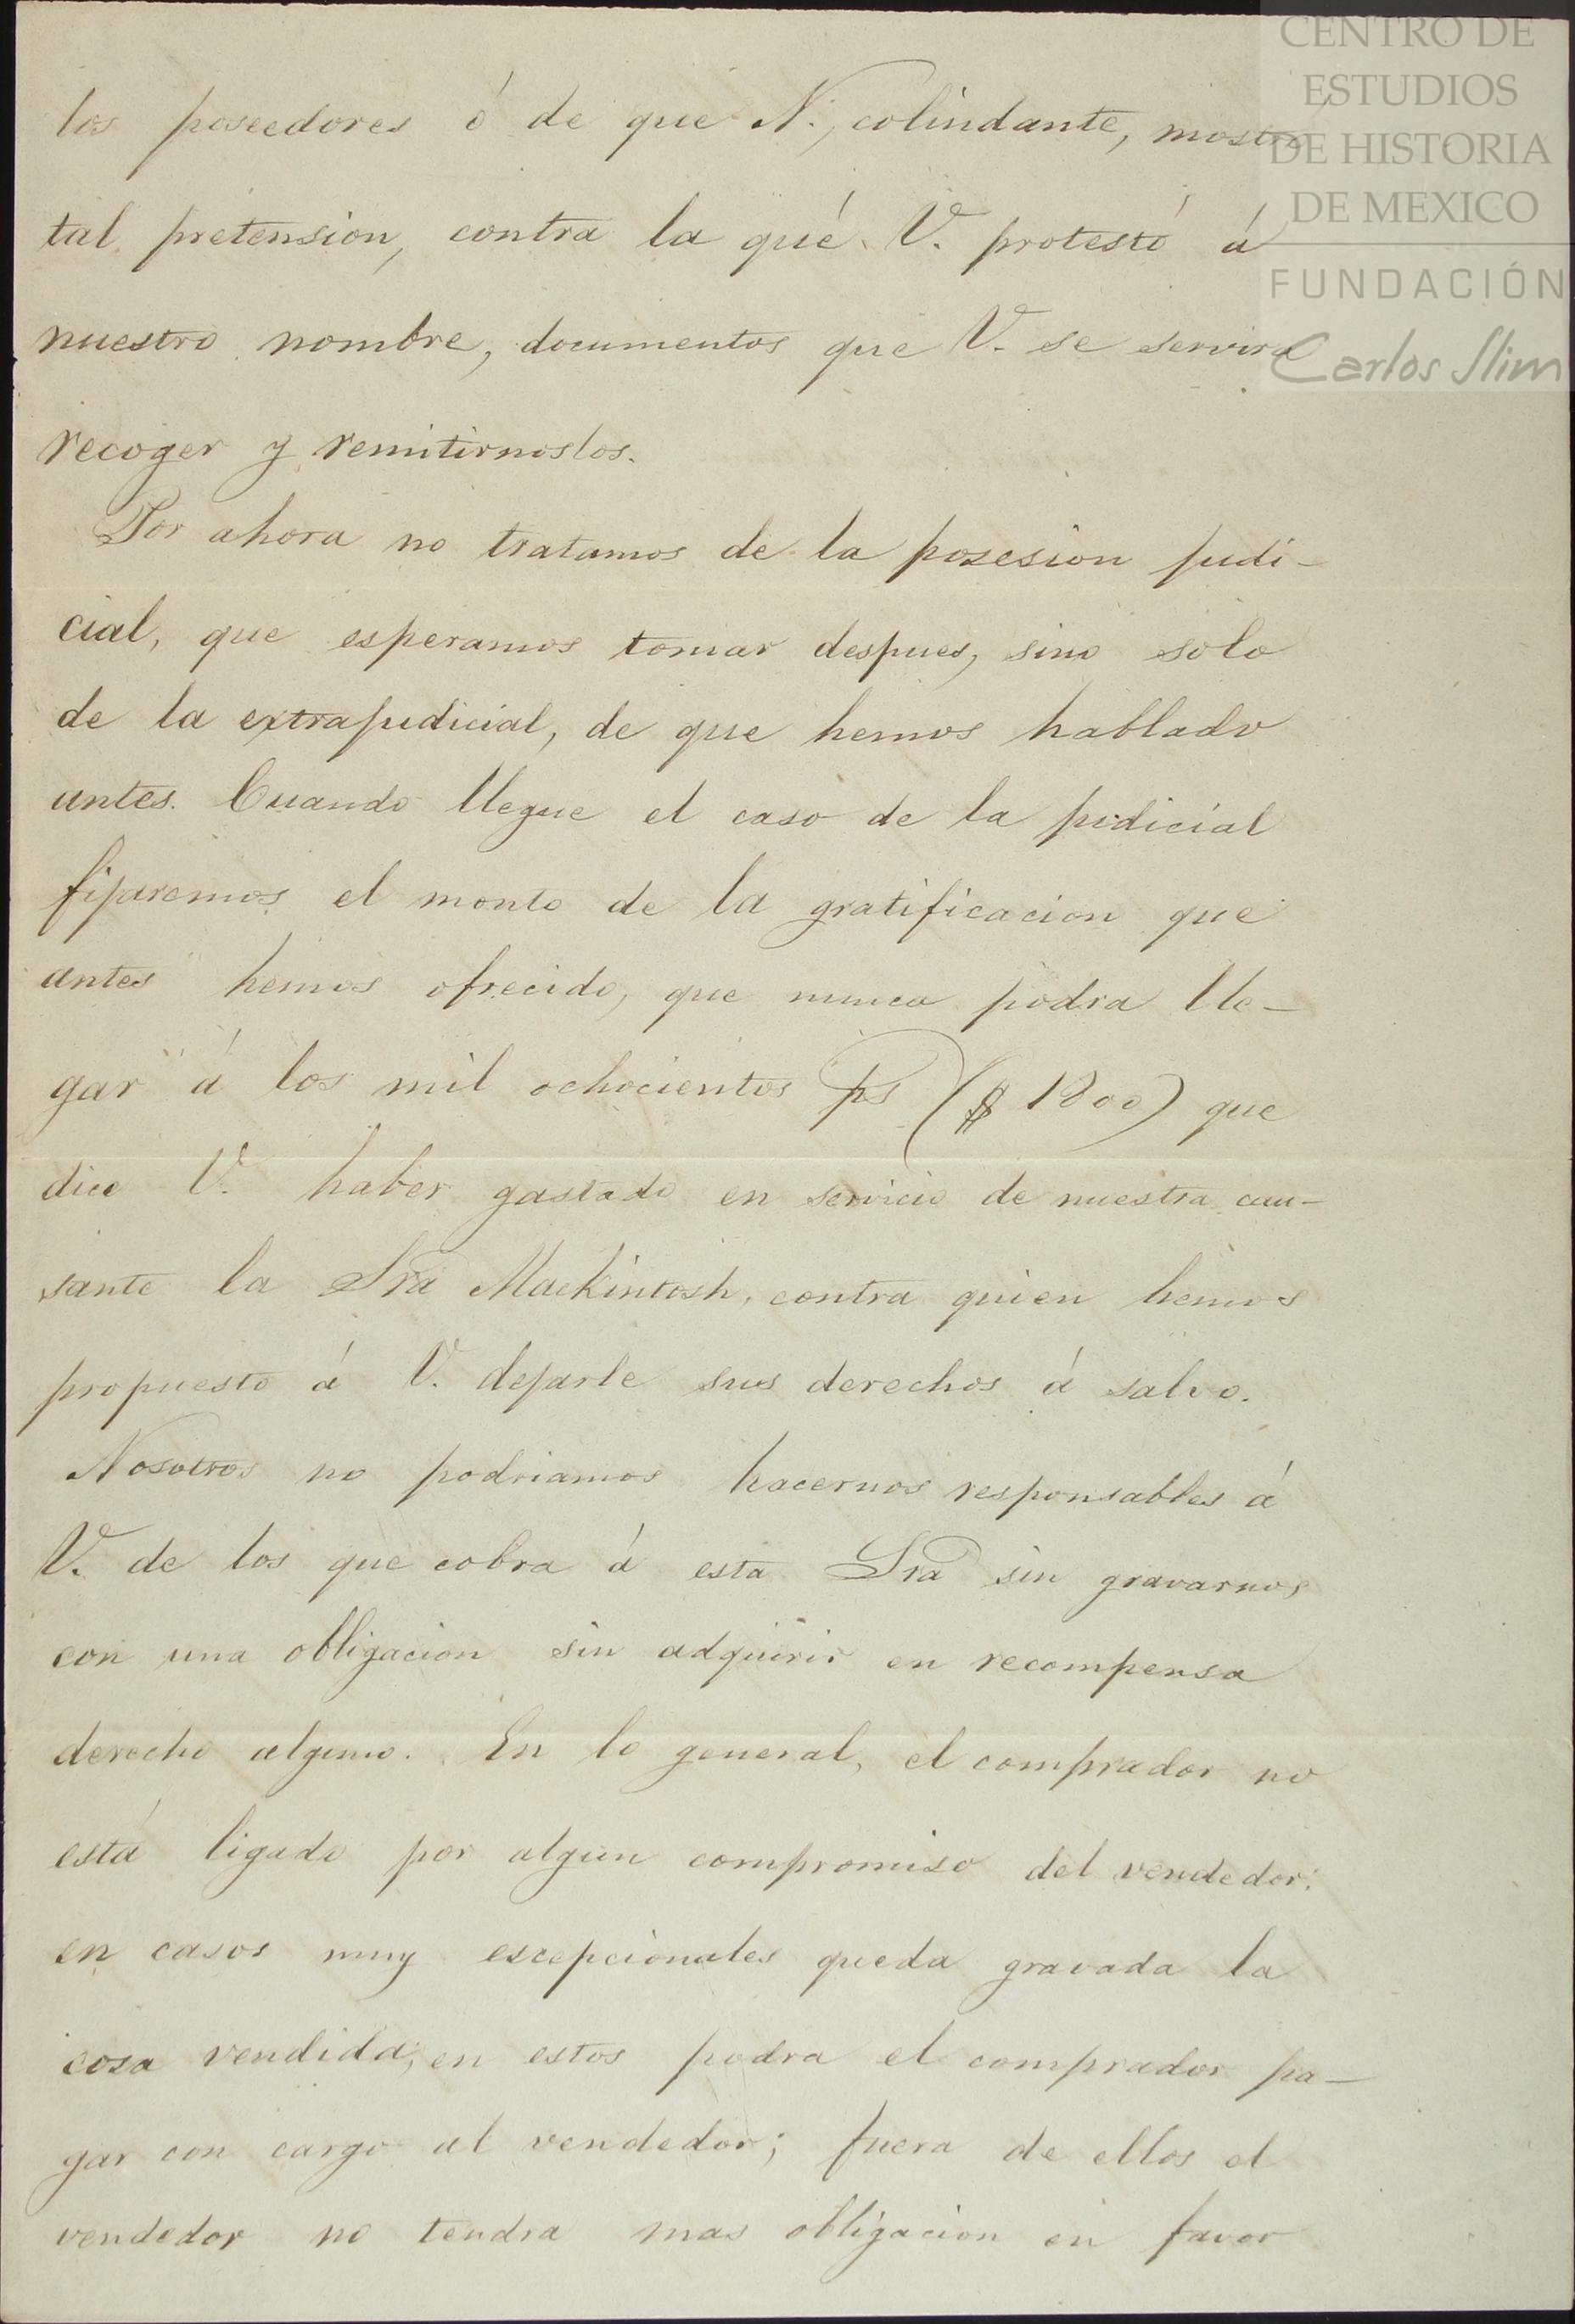 CENTRO DE
ESTUDIOS
DE HISTORIA
DE MEXICO
FUNDACIÓN
Carlos Slim
los poseedores ó de que N., colindante, mostró
tal pretension, contra la qué V. protestó á
nuestro nombre, documentos que V. se servirá
recoger y remitirnoslos.
Por ahora no tratamos de la posesion judi-
cial, que esperamos tomar despues, sino solo
de la extrajudicial, de que hemos hablado
antes. Cuando llegue el caso de la judicial
fijaremos el monto de la gratificacion que
antes hemos ofrecido, que nunca podra lle-
gar á los mil ochocientos ps ($ 1800) que
dice V. haber gastado en servicio de nuestra cau-
sante la Sra Mackintosh, contra quien hemos
propuesto á V. dejarle sus derechos á salvo.
Nosotros no podriamos hacernos responsables á
V. de los que cobra á esta Sra sin gravarnos
con una obligacion sin adquirir en recompensa
derecho alguno. En lo general, el comprador no
está ligado por algun compromiso del vendedor:
en casos muy escepcionales queda gravada la
cosa vendida; en estos podra el comprador pa-
gar con cargo al vendedor; fuera de ellos el
vendedor no tendra mas obligacion en favor